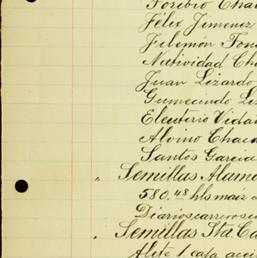 Toribio Chac
Félix Jimenez
Filemón Fon
Natividad Cha
Juan Lizardo
Gumecindo Li
Eleuterio Vidar
Alvino Chac
Santos Garcia
" Semillas Alam
580.48 hls maiz a
Diarios carreros e
" Semillas Sta Ca
Alite 1 caja acei